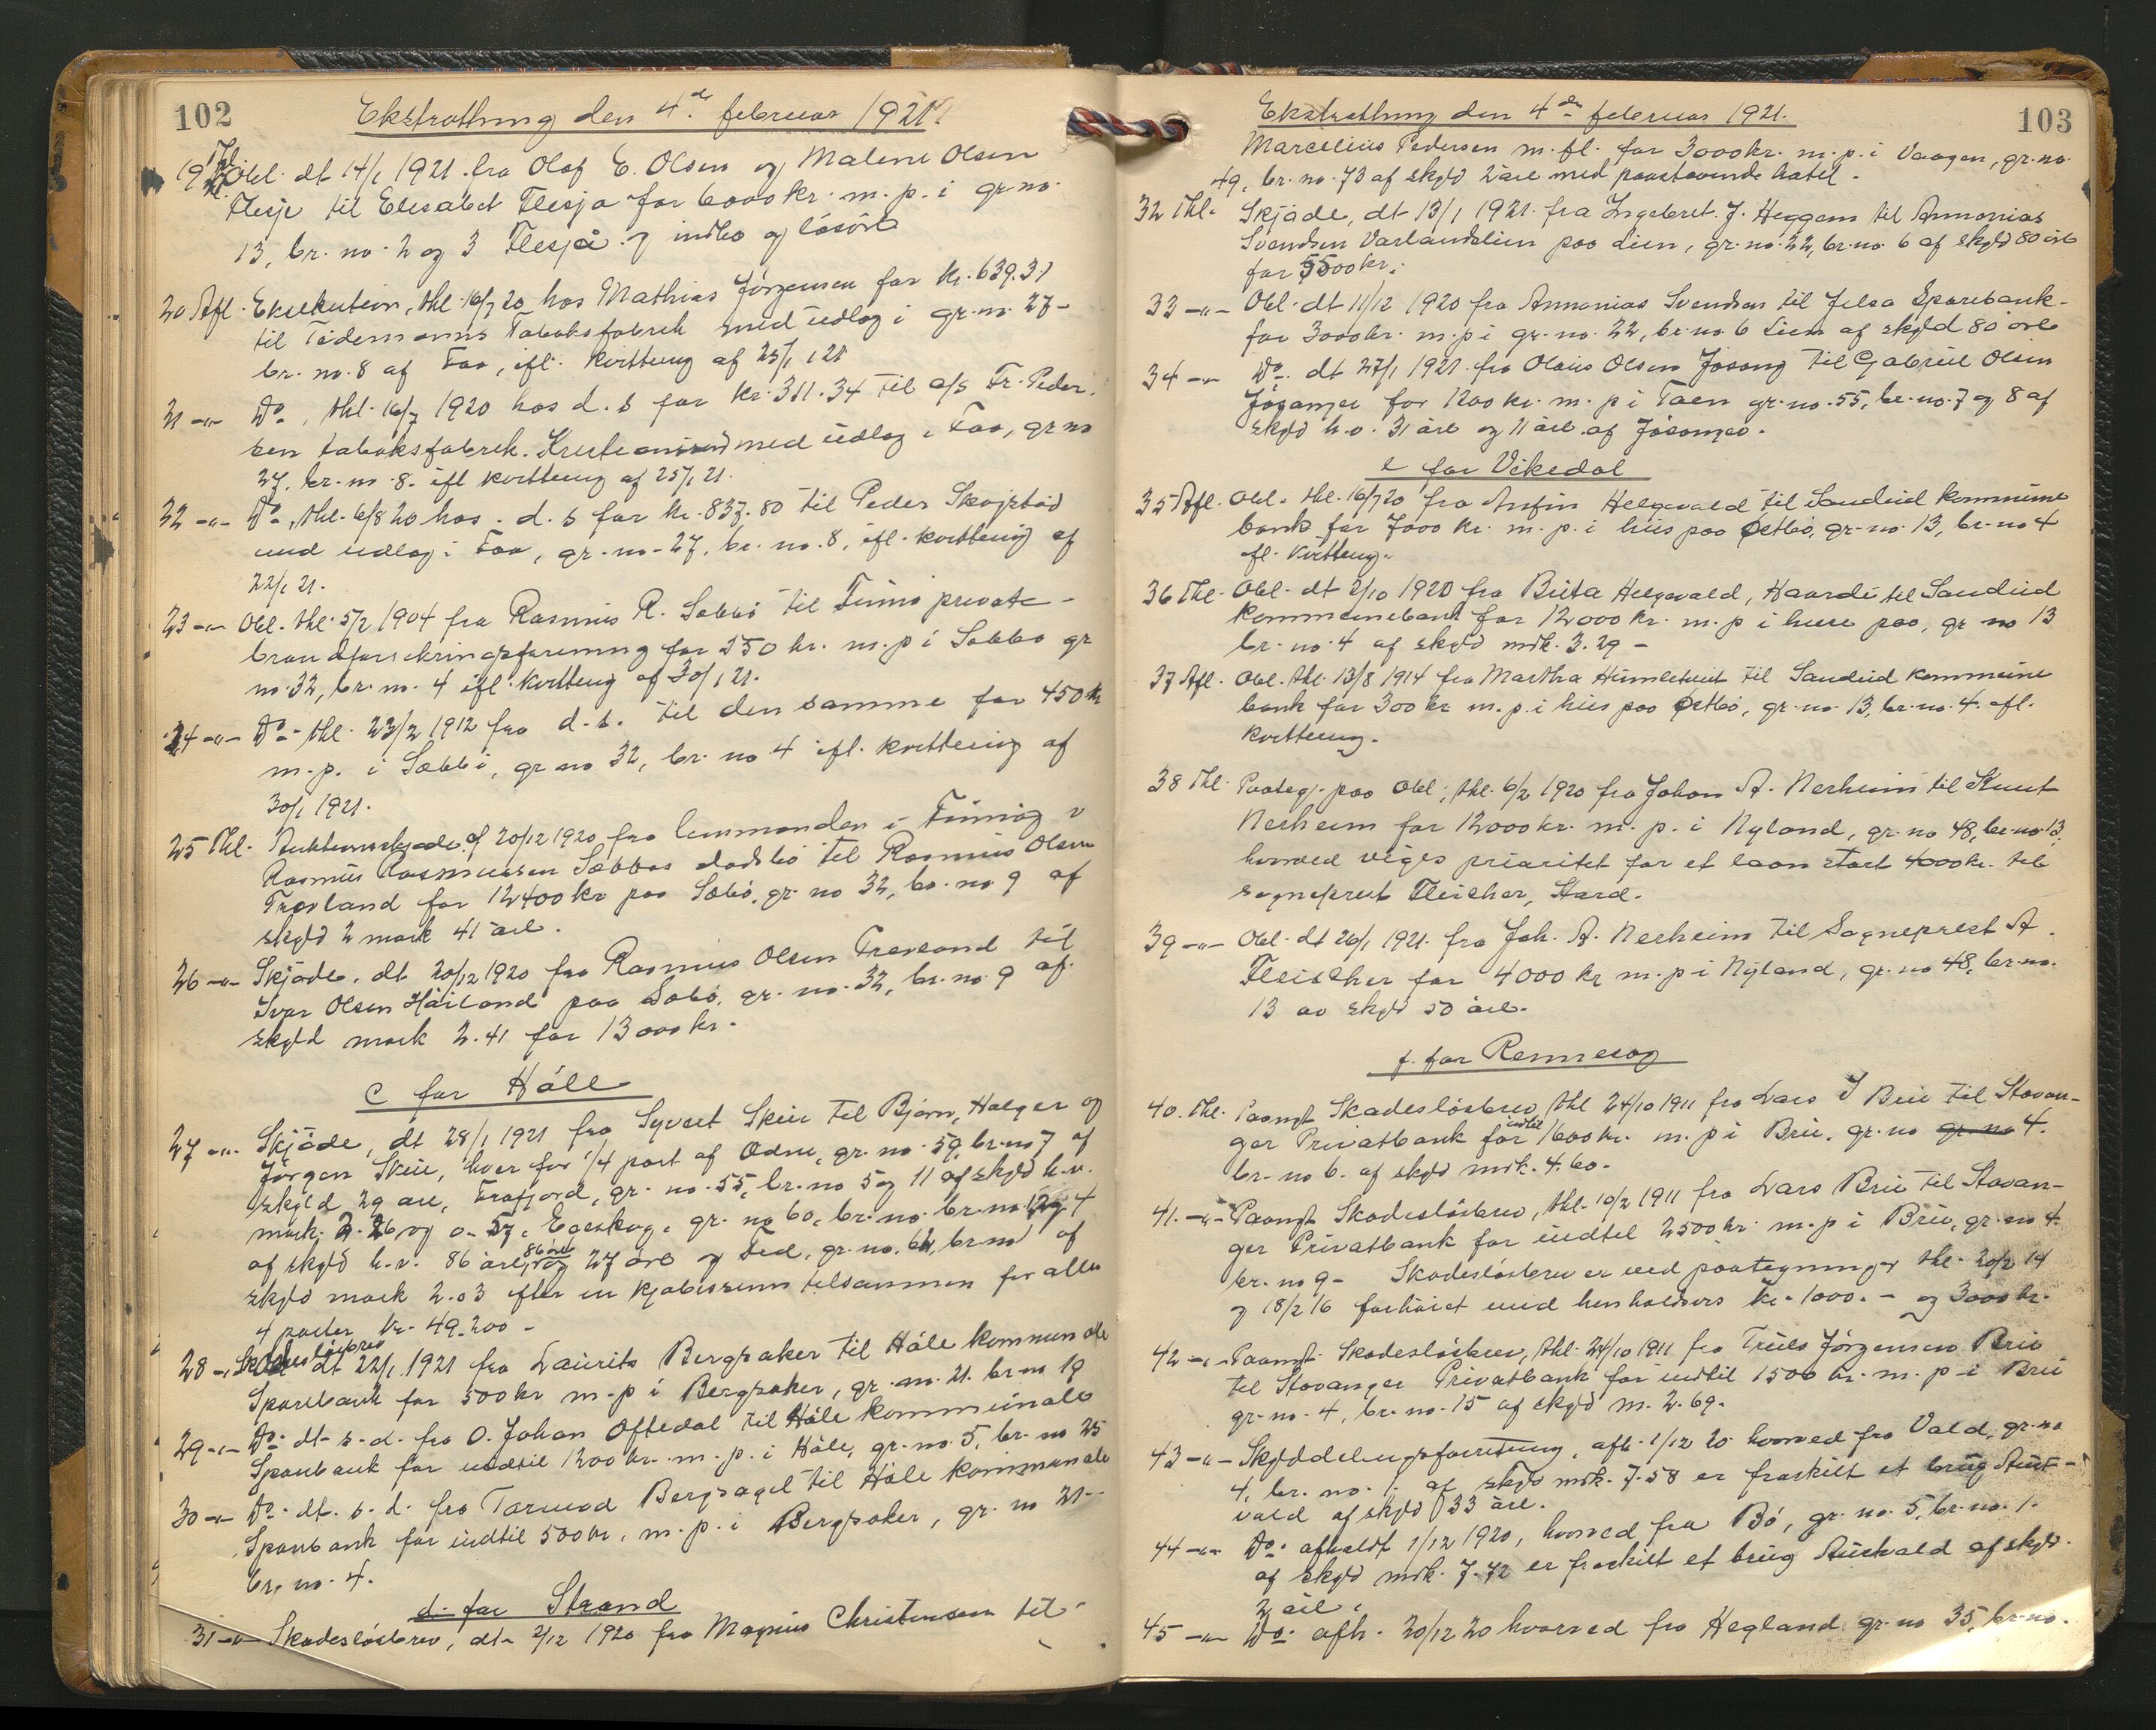 102
Ekstrathing den 4de februar 1921
19 Thl. Obl. dt 14/1 1921 fra Olaf E. Olsen og Malene Olsen
Flesje til Elisabet Flesja for 6000 kr. m. p. i gr. no.
13, br. no. 2 og 3 Flesjå og indbo og løsøre
20 Afl. Eksekution, thl. 16/7 20 hos Mathias Jörgensen for kr. 639.31
til Tidemanns Tobaksfabrik med udlæg i gr. no. 27-
br. no. 8 af Foo, ifl. kvittering af 25/1 21
21 -"- Do., thl. 16/7 1920 hos d. s for kr. 311.34 til a/s Fr. Peder-
sen tabaksfabrik. Kristiania med udlæg i Foo, gr no
27, br. no. 8. ifl kvittering af 25/1 21.
22 -"- Do., thl. 6/8 20 hos d. s for kr. 837.80 til Peder Skojstad
med udlæg i Foo, gr. no. 27, br. no. 8, ifl. kvittering af
22/1 21.
23 -"- Obl. thl. 5/2 1904 fra Rasmus R. Sabbö til Finnö private-
brandforsikringsforening for 250 kr. m. p i Sabbø gr
no. 32, br. no. 4 ifl. kvittering af 30/1 21.
24 -"- Do. thl. 23/2 1912 fra d. s. til den samme for 450 kr
m. p. i Sæbbö, gr no 32, br. no 4 ifl. kvittering af
30/1 1921.
25 Thl. Auktionsskjøde af 20/12 1920 fra lensmanden i Finnöy i
Rasmus Rasmussen Sæbbøs dødsbo til Rasmus Olsen
Træland for 12400 kr paa Sæbö, gr. no 32, br. no. 9 af
skyld 2 mark 41 øre.
26 -"- Skjøde, dt 20/12 1920 fra Rasmus Olsen Træland til
Ivar Olsen Håiland paa Sobö, gr. no. 32, br. no. 9 af
skyld mark 2.41 for 13000 kr.
c for Håle
27 -"- Skjöde, dt 28/1 1921 fra Syvert Skeie til Björn, Holger og
Jörgen Skeie, hver for 1/4 part af Ødne, gr. no. 59, br. no 7 af
skyld 29 øre, Frafjord, gr. no. 55, br. no 5 og 11 af skyld h. v.
mark. 2.26 og 0-57, Egeskog, gr. no 60, br. no. br. no. 1, 2 og 4
af skyld h. v. 86 øre, 86 øre og 27 øre og Fed, gr. no. 61, br. no 1 af
skyld mark 2.03 efter en kjøbesum tilsammen for alle
4 parter kr. 49.200-
28 -"- Skadesløsbrev dt 22/1 1921 fra Laurits Bergsaker til Håle kommunale
Sparebank for 500 kr m. p i Bergsaker, gr. no. 21. br. no 19
29 -"- Do. dt. s. d. fra O. Johan Oftedal til Håle kommunale
Sparebank for indtil 1200 kr. m. p. i Håle, gr. no. 5, br. no 25
30 -"- Do. dt. s. d. fra Tarmod Bergsagel til Håle kommunale
Sparebank for indtil 500 kr. m. p. i Bergsaker, gr. no 21-
br. no. 4.
d. for Strand
31 -"- Skadesløsbrev, dt. 2/12 1920 fra Magnus Christensen til
103
Ekstrathing den 4de februar 1921.
Marcelius Pedersen m. fl. for 3000 kr. m. p. i Vaagen, gr. no.
49, br. no. 73 af skyld 2 øre med paastaaende hotel.
32 Thl. Skjøde, dt 13/1 1921 fra Ingebret J. Heggem til Annanias
Svendsen Varlandslien paa Lien, gr. no. 22, br. no. 6 af skyld 80 øre
for 5500 kr.
33 -"- Obl. dt 11/12 1920 fra Annanias Svendsen til Jelsa Sparebank-
for 3000 kr. m. p i gr. no. 22, br. no 6 Lien af skyld 80 øre
34 -"- Do. dt 27/1 1921 fra Olaus Olsen Jösang til Gabriel Olsen
Jösangei for 1200 kr. m. p i Taen gr. no. 55, br. no. 7 og 8 af
skyld h. v. 31 øre og 11 øre af Jösangeo.
e for Vikedal
35 Afl. Obl. thl. 16/7 20 fra Anfin Helgevald til Sandeid kommune
bank for 7000 kr. m. p. i hus paa Østbö, gr. no. 13, br. no 4
ifl. kvittering.
36 Thl. Obl. dt 2/10 1920 fra Brita Helgevald, Haardi til Sandeid
kommunebank for 12000 kr. m. p i huse paa, gr no 13
br. no. 4 af skyld mrk. 3.29-
37 Afl. Obl. thl. 13/8 1914 fra Martha Himletveit til Sandeid kommune
bank for 300 kr m. p. i hus paa Østbö, gr. no. 13, br. no. 4. ifl.
kvittering.
38 Thl. Paategn. paa Obl., thl. 6/2 1920 fra Johan A. Nerheim til Knut
Nerheim for 12000 kr. m. p. i Nyland, gr. no 48, br. no. 13,
hvorved viges prioritet for et laan stort 4000 kr. til
sogneprest Fleicher, Stord.
39 -"- Obl. dt 26/1 1921 fra Joh. A. Nerheim til Sogneprest A.
Fleischer for 4000 kr m. p i Nyland, gr. no 48, br. no.
13 av skyld 50 øre.
f. for Rennesøy
40. Thl. Paategt Skadeslösbrev, thl 24/10 1911 fra Lars I Brie til Stavan-
ger Privatbank for indtil 1600 kr. m. p i Brie. gr. no gr. no 4.
br. no 6. af skyld mrk. 4.60.
41. -"- Paategt Skadeslösbrev, thl. 10/2 1911 fra Lars Brie til Stavan-
ger Privatbank for indtil 2500 kr. m. p i Brie, gr. no 4.
br. no 9- Skadeslösbrev er ved paategninger thl. 20/2 14
og 18/2 16 forhöiet med henholdsvis kr. 1000.- og 3000 kr.
42 -"- Paategt Skadeslösbrev, thl. 24/10 1911 fra Truls Jørgensen Brie
til Stavanger Privatbank for indtil 1500 kr. m. p i Brie
gr. no. 4, br. no. 15 af skyld m. 2.69.
43 -"- Skylddelingsforretning, afh. 1/12 20 hvorved fra Vald, gr. no
4, br. no. 1. af skyld mrk. 7.58 er fraskilt et brug Aust-
vald af skyld 33 øre.
44 -"- Do. afholdt 1/12 1920, hvorved fra Bö, gr. no. 5, br. no. 1.
af skyld mrk. 7.72 er fraskilt et brug Austvald af skyld.
2 øre.
45 -"- Do. afh. 20/12 20 hvorved fra Hegland gr. no 35, br. no.